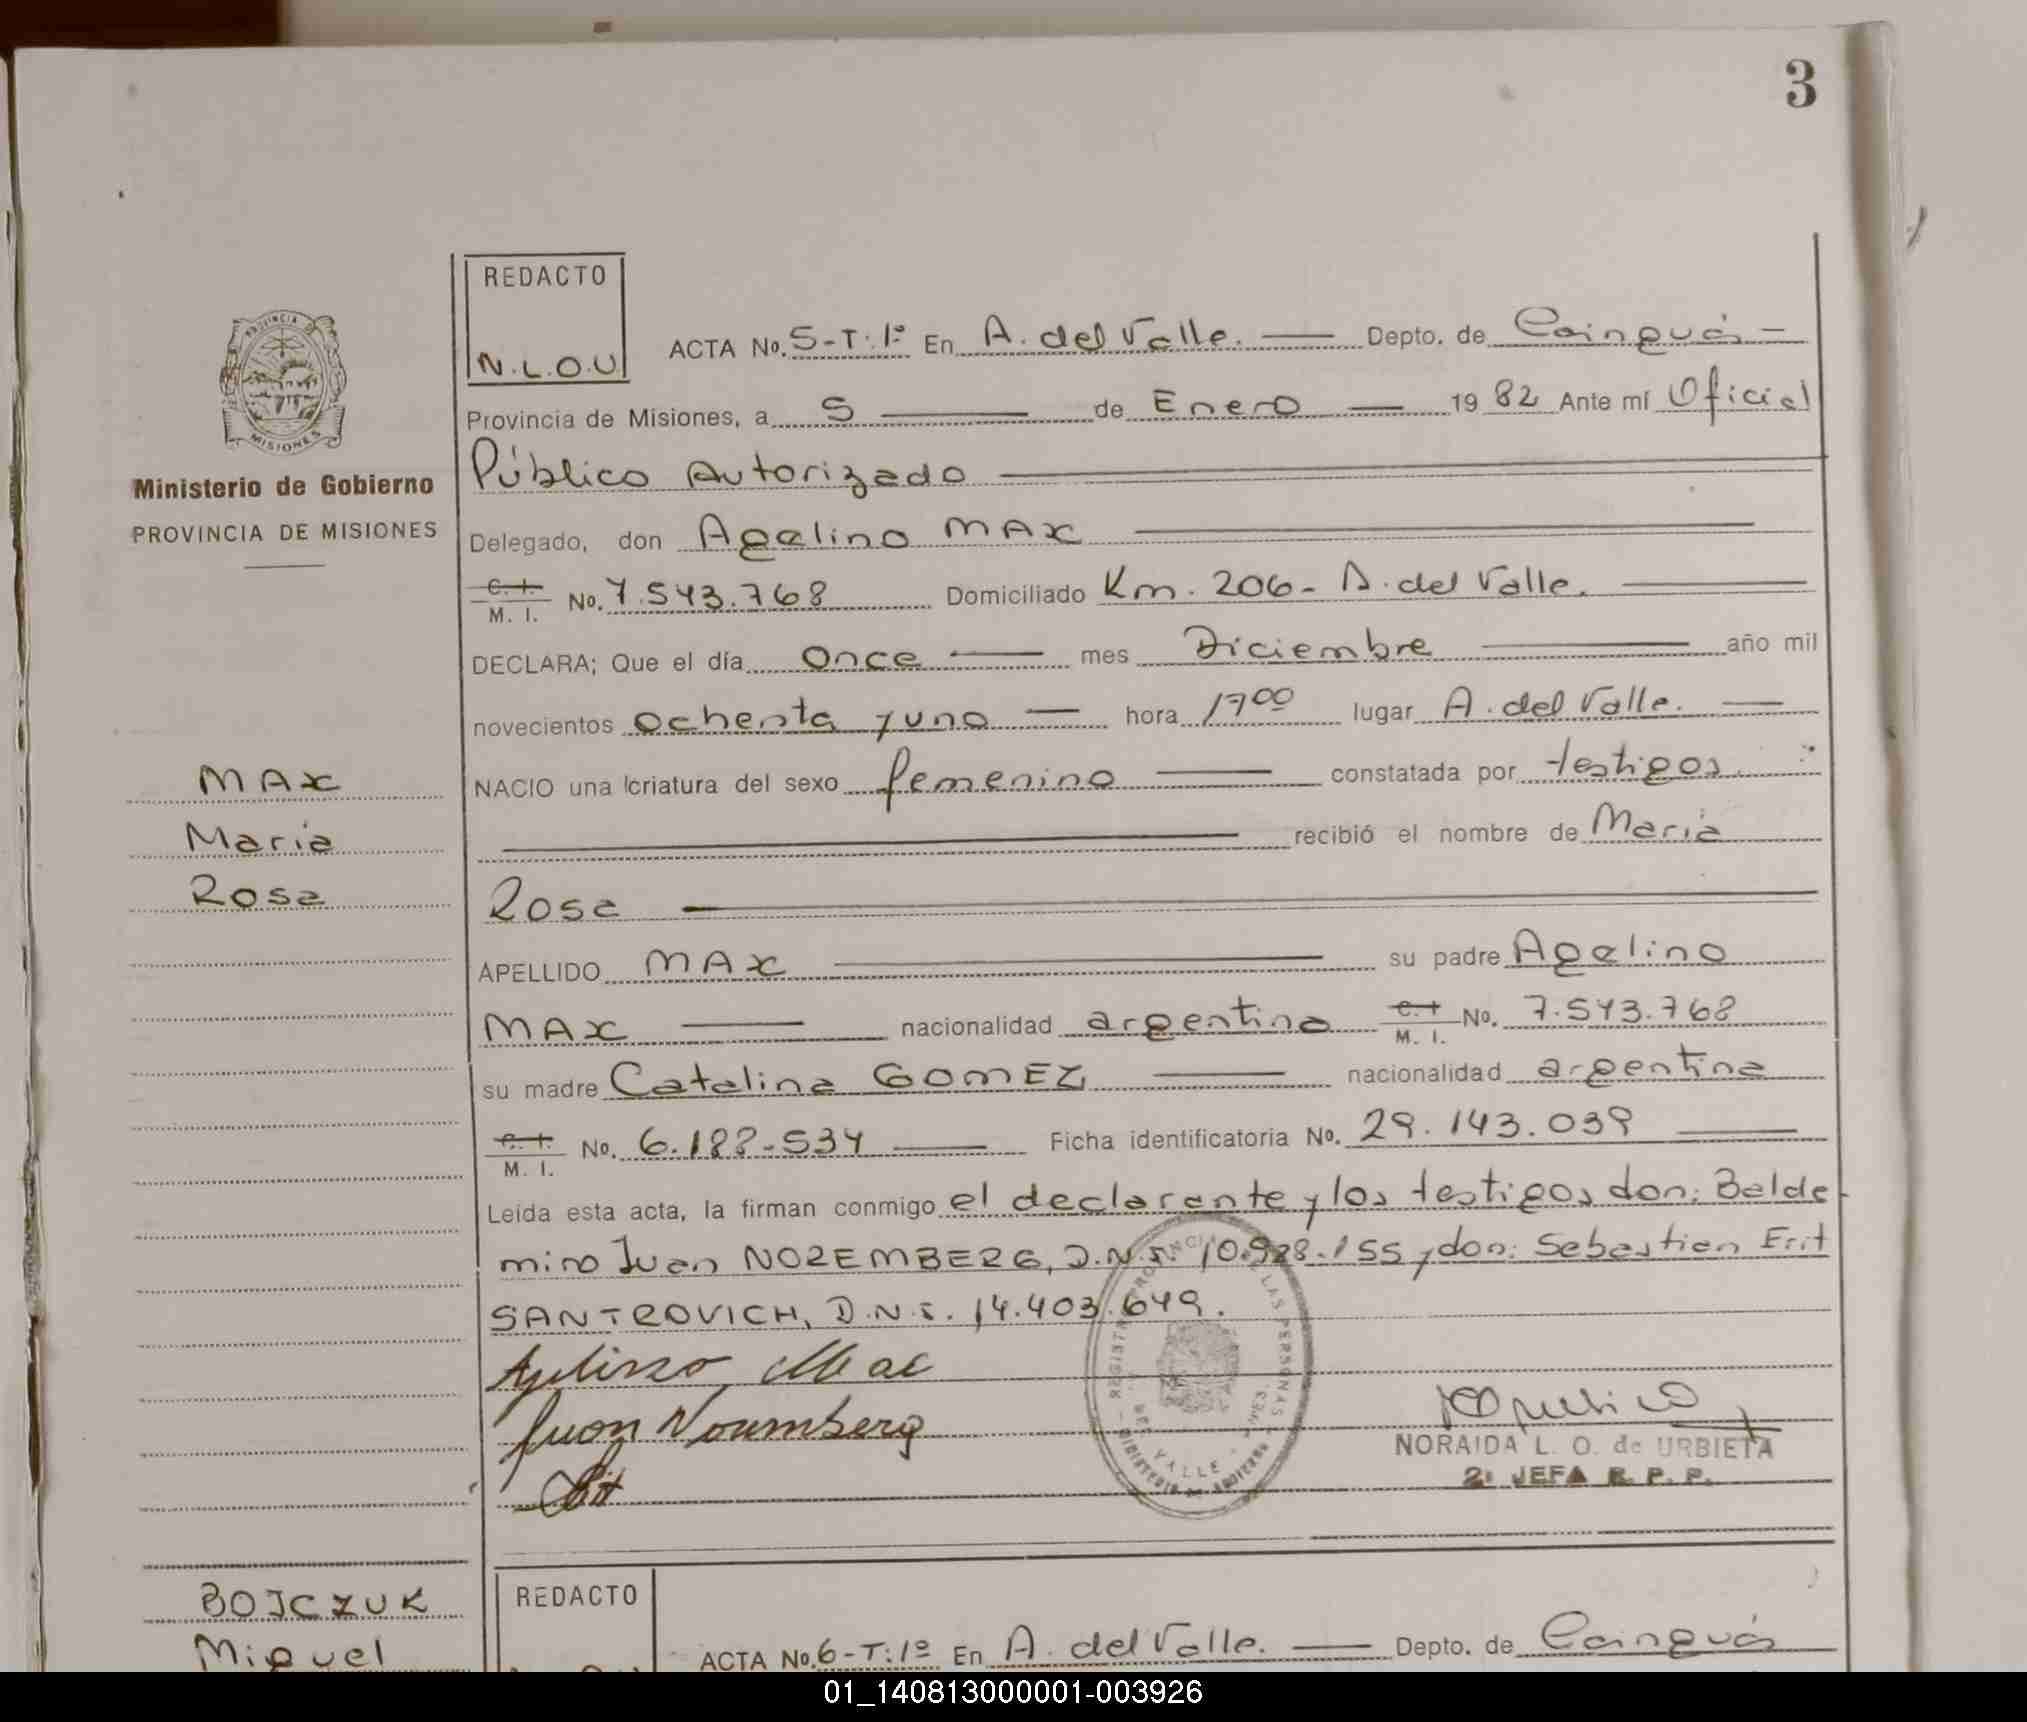 3
REDACTO
N.L.O.U
ACTA No. 5-T:1º En A. del Valle. Depto. de Cainguás
Provincia de Misiones, a 5 de Enero 1982 Ante mí Oficial
Público Autorizado
Ministerio de Gobierno
PROVINCIA DE MISIONES
Delegado, don Agelino MAX
C. I. M. I. No. 7.543.768 Domiciliado Km. 206- A. del Valle.
DECLARA; Que el día once mes Diciembre año mil
novecientos ochenta y uno hora 17 00 lugar A. del Valle.
NACIO una criatura del sexo femenino constatada por testigos
recibió el nombre de María
Rosa
MAX
María
Rosa
APELLIDO MAX su padre Agelino
MAX nacionalidad argentino C. I. M. I. No. 7.543.768
su madre Catalina GOMEZ nacionalidad argentina
C. I. M. I. No. 6.188-534 Ficha identificatoria No. 29.143.039
Leida esta acta, la firman conmigo el declarante y los testigos don: Balde
miro Juan NOREMBERG, D.N.I. 10.928.155 y don: Sebastian Erit
SANTROVICH, D.N.I. 14.403.649.
Juan Noremberg
NORAIDA L. O. de URBIETA
2ª JEFA R. P. P.
BOJCZUK
Miguel
REDACTO
ACTA No. 6-T:1º En A. del Valle. Depto. de Cainguás
01_140813000001-003926